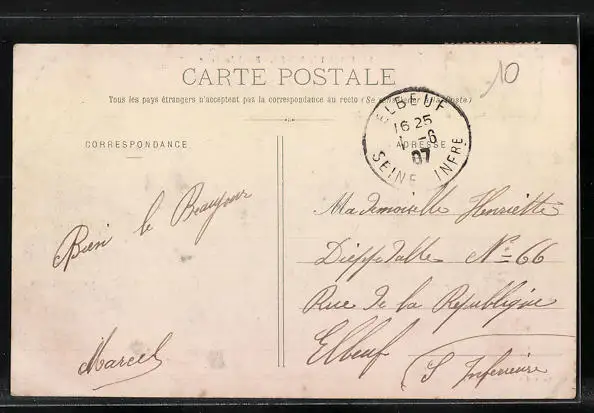 10
CARTE POSTALE
Tous les pays étrangers n'acceptent pas la correspondance au recto (Se renseigner à la Poste)
ELBEUF
16 25
1 -6
07
SEINE INFRE
CORRESPONDANCE
ADRESSE
Bien le Beaujour
Marcel
Mademoiselle Henriette
Dieppedalle No 66
Rue de la Republique
Elbeuf
S Inferieure